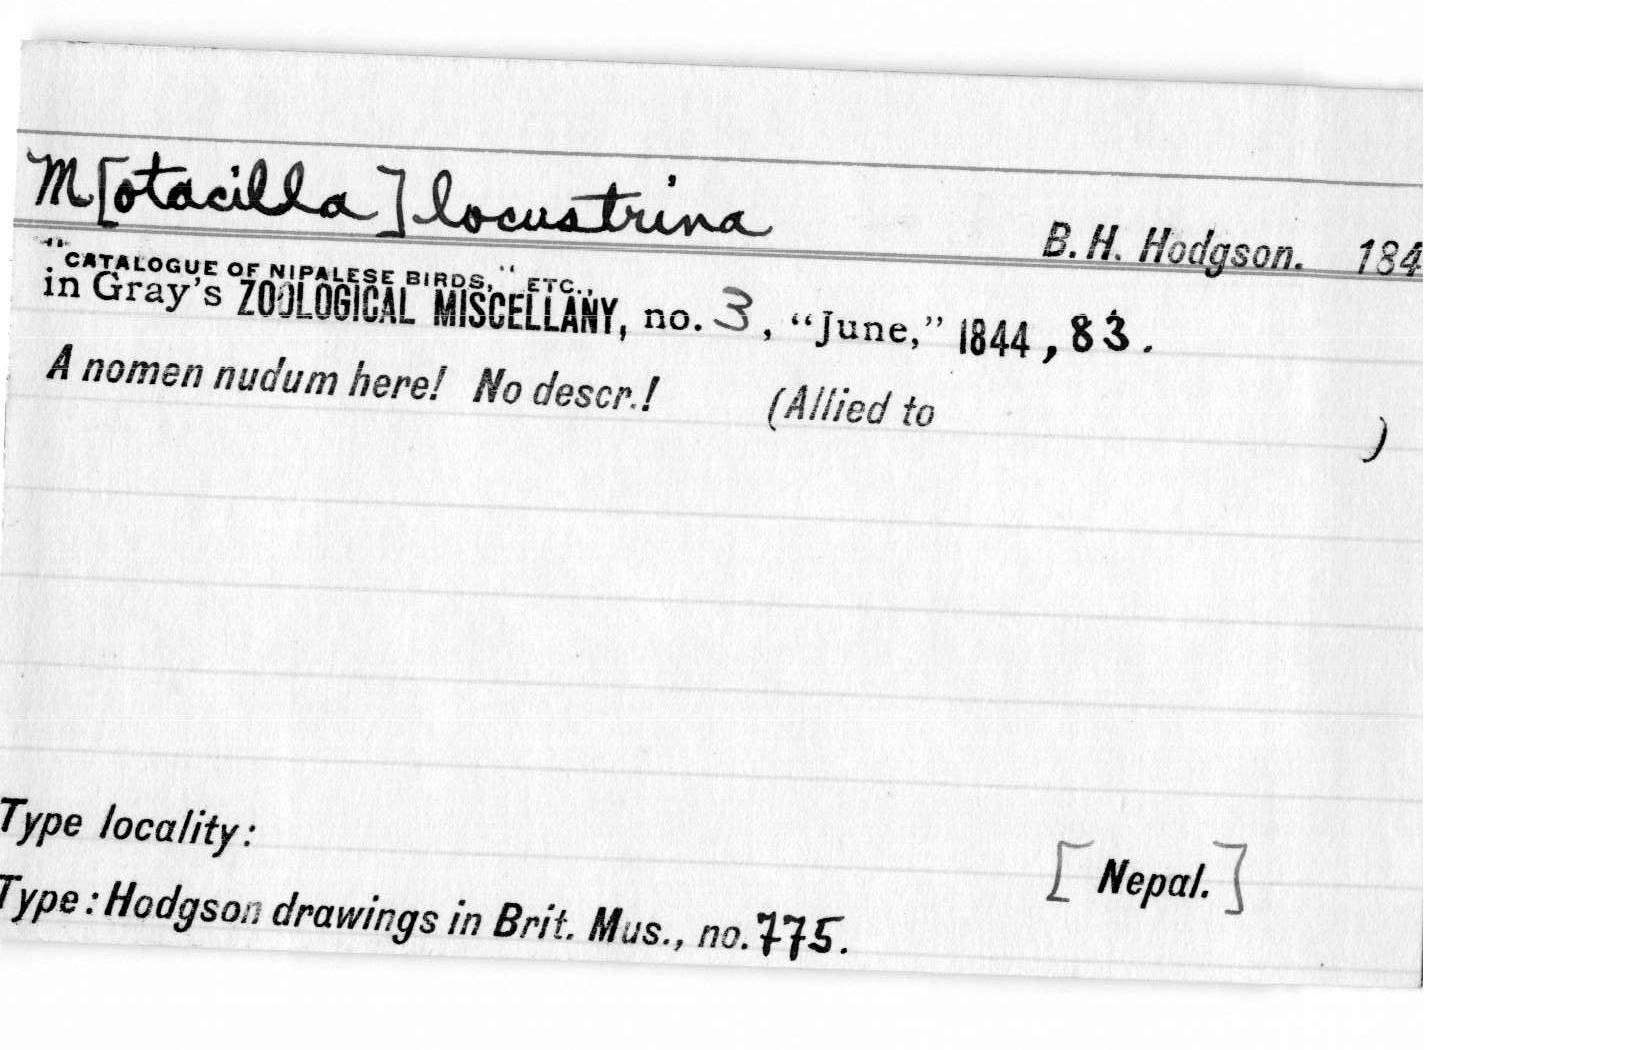 M[otacilla] locustrina
B. H. Hodgson. 184
"CATALOGUE OF NIPALESE BIRDS," ETC.,
in Gray's ZOOLOGICAL MISCELLANY, no. 3, "June," 1844, 83.
A nomen nudum here! No descr.! (Allied to )
Type locality: [Nepal.]
Type: Hodgson drawings in Brit. Mus., no. 775.